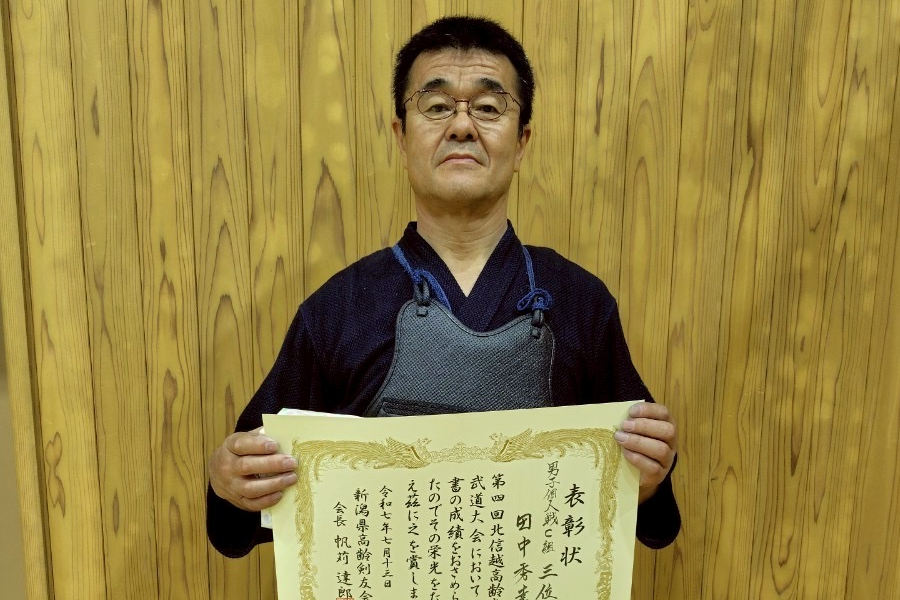 表彰状
男子個人戦C組 三位
田中秀
第四回北信越高齢
武道大会において
書の成績をおさめら
たのでその栄光をた
え茲に之を賞しま
令和七年七月十三日
新潟県高齢剣友会
会長 帆苅 達郎